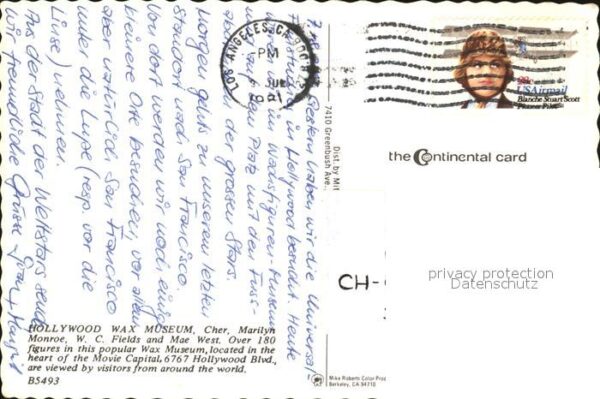 Gestern haben wir die Universal-
in Hollywood besucht. Heute
Wachsfiguren-Museum
Platz mit den Fuss-
der grossen Stars.
Morgen gehts zu unserem letzten
Standort nach San Francisco.
Von dort werden wir noch einige
kleinere Orte besuchen, vor allem
aber natürlich San Francisco
unter die Lupe (resp. vor die
Linse) nehmen.
Aus der Stadt der Weltstars sende
freundliche Grüsse
HOLLYWOOD WAX MUSEUM, Cher, Marilyn
Monroe, W. C. Fields and Mae West. Over 180
figures in this popular Wax Museum, located in the
heart of the Movie Capital, 6767 Hollywood Blvd.,
are viewed by visitors from around the world.
B5493
LOS ANGELES, CA
PM
1981
USAirmail
Blanche Stuart Scott
Pioneer Pilot
Dist. by Mit
7410 Greenbush Ave.,
the Continental card
CH-
privacy protection
Datenschutz
Mike Roberts Color Prod
Berkeley, CA 94710